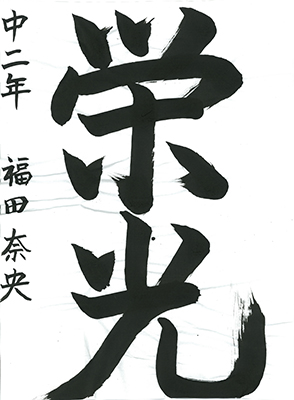 栄光
中二年 福田奈央